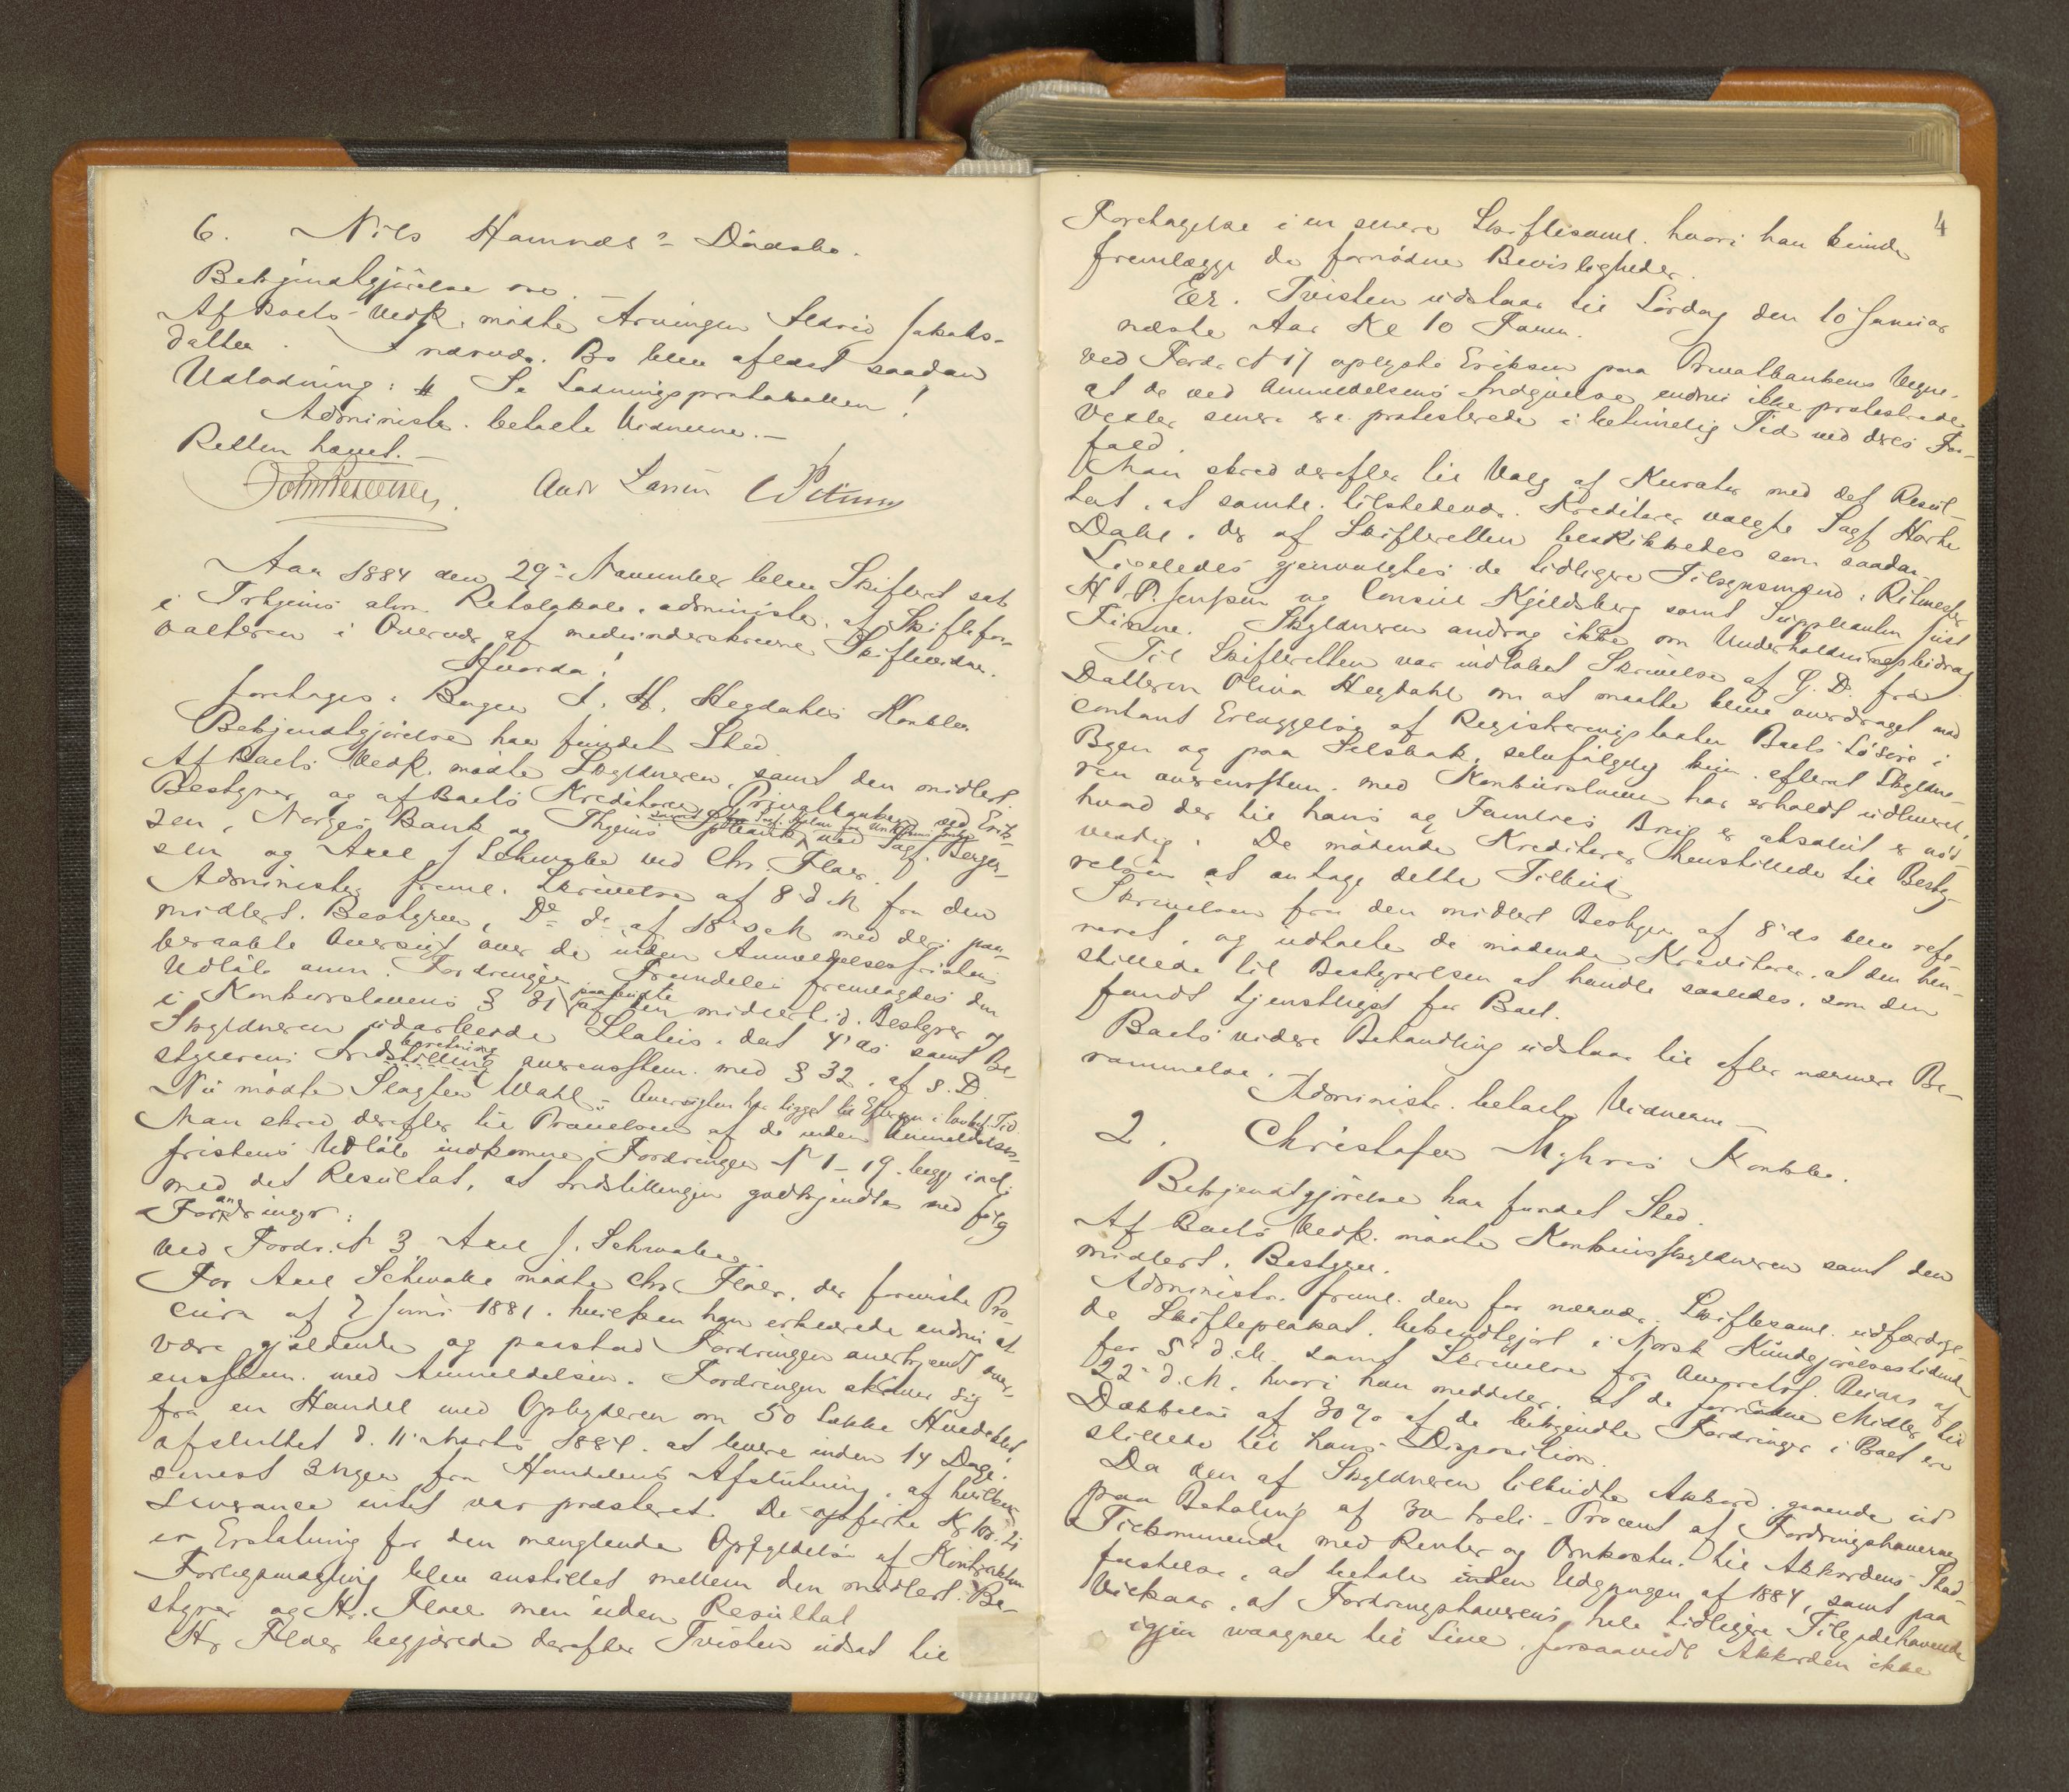 6. Nils Hamnæs's Dödsbo.
Bekjendtgjörelse
Af Boets Vedk. mödte Arvingen Jakobs-
datter. I nærvær. Bo blev afläst saadan
Udlodning: Se Lodningsprotokollen!
Administr. betalte Vidnerne.-
Retten hævet.-
Aar 1884 den 29de November blev Skifteret sat
i Trhjems alm. Retslokale, administr. af Skiftefor-
valteren i Overvær af medunderskrevne Skiftevidner.
Hvorda!
foretoges: Bager J. H. Hegdahls Konkbo.
Bekjendtgjörelse har fundet Sted
Af Boets Vedk. mödte Skyldneren, samt den midlert.
Bestyrer, og af Boets Kreditorer Privatbanken ved Erik-
sen, Norges Bank og Thjems Spbank, ved Sagf. Jerger-
sen og Axel J Schwabe ved Chr. Floer.
Administr. freml. Skrivelse af 8 d M fra den
midlert. Bestyrer, Do do af 18 d M med deri paa-
beraabte Oversigt over de inden Anmeldelsesfristens
Udlöb anm. Fordringer Fremdeles fremlagdes den
i Konkurslovens § 31 paabudte af den midlertid. Bestyrer og
Skyldneren udarbeide Status, dat 4' ds samt Be-
styrerens Indberetning overensstem. med § 32. af s. D.
Nu mödte Slagter Wahl - Oversigten har ligget til Eftersyn i lovbest. Tid.
Man skred derefter til Prövelsen af de inden Anmeldelses-
fristens Udlöb indkomne Fordringer No 1-19. begge incl.
med det Resultat, at Indstillingen godkjendtes med fölg
Forandringer:
Ved Fordr. No 3 Axel J. Schwabe
For Axel Schwabe mödte Chr. Floer, der foreviste Pro-
cura af 7 Juni 1881. hvilken han erklærede endnu at
være gjældende og paastod Fordringen anerkjendt over-
ensstem. med Anmeldelsen. Fordringen skriver sig
fra en Handel med Opbyderen om 50 Sække Hvedemel,
afsluttet d. 11' Marts 1884. at levere inden 14 Dage.
senest 3 Uger fra Handelens Afslutning, af hvilken
Leverance intet var præsteret. De opförte Kr.
er Erstatning for den manglende Opfyldelse af Kontrakten
Forligsmægling blev anstillet mellem den midlert. Be-
styrer og Hr. Floer men uden Resultat
Hr Floer begjærede derefter Tvisten udsat til
4
Foretagelse i en senere Skiftesaml. hvori han kunde
fremlægge de fornödne Bevisligheder.
Er. Tvisten udstaar til Lördag den 10 Januar
næste Aar Kl 10 Form.
Ved Fordr. No 17 oplyste Eriksen paa Privatbankens Vegne,
at de ved Anmeldelsens Indgivelse endnu ikke protesterede
Vexler senere er protesterede i betimelig Tid ved deres For-
fald.
Man skred derefter til Valg af Kurator med det Resul-
tat, at samtl. tilstedevær. Kreditorer valgte Sagf Horte
Dahl. der af Skifteretten beskikkedes som saadan
Ligeledes gjenvalgtes de tidligere Tilsynsmænd, Ritmester
H P. Jenssen og Consul Kjeldsberg samt Suppleanten Just
Finne. Skyldneren androg ikke om Underholdningsbidrag
Til Skifteretten var indlöbet Skrivelse af G. D. fra
Datteren Olina Hegdahl om at maatte blive overdraget mod
contant Erlæggelse af Registreringstaxten Boets Lösöre i
Byen og paa Selsbak, selvfölgelig kun, efterat Skyldne-
ren overensstem. med Konkursloven har erholdt udleveret,
hvad der til hans og Families Brug er absolut er nöd-
vendig. De mödende Kreditorer henstillede til Besty-
relsen at antage dette Tilbud
Skrivelsen fra den midlert Bestyrer af 8' ds blev refe-
reret, og udtalte de mödende Kreditorer, at den hen-
stillede til Bestyrerelsen at handle saaledes, som den
fandt tjenstligst for Boet.
Boets videre Behandling udstaar til efter nærmere Be-
rammelse.
Administr. betalte Vidnerne-
2. Christofer Myhres Konkbo.
Bekjendtgjörelse har fundet Sted.
Af Boets Vedk. mödte Konkursskyldneren samt den
midlert. Bestyrer.
Administr. freml. den for nærvær. Skiftesaml. udfærdige-
de Skifteplakat, bekjendtgjort i Norsk Kundgjörelsestidende
for 5' d. M. samt Skrivelse fra Overretssf. af
22' d. M. hvori han meddeler, at de fornödne Midler til
Dækkelse af 30% af de bekjendte Fordringer i Boet er
stillede til hans Disposition.
Da den af Skyldneren tilbudte Akkord, gaaende ud
paa Betaling af 30 - treti - Procent af Fordringshavernes
Tilkommende med Renter og Omkostn. til Akkordens Stad-
fæstelse, at betale inden Udgangen af 1884, samt paa
Vilkaar, at Fordringshaverens hele tidligere Tilgodehavende
igjen vaagner til Live, forsaavidt Akkorden ikke